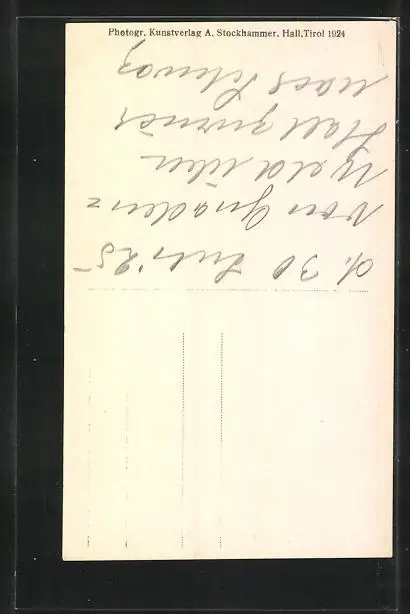 Photogr. Kunstverlag A. Stockhammer, Hall, Tirol 1924
d. 30 Juli '25
von Gnaden=
wald über
Hall zurück
nach Schwaz